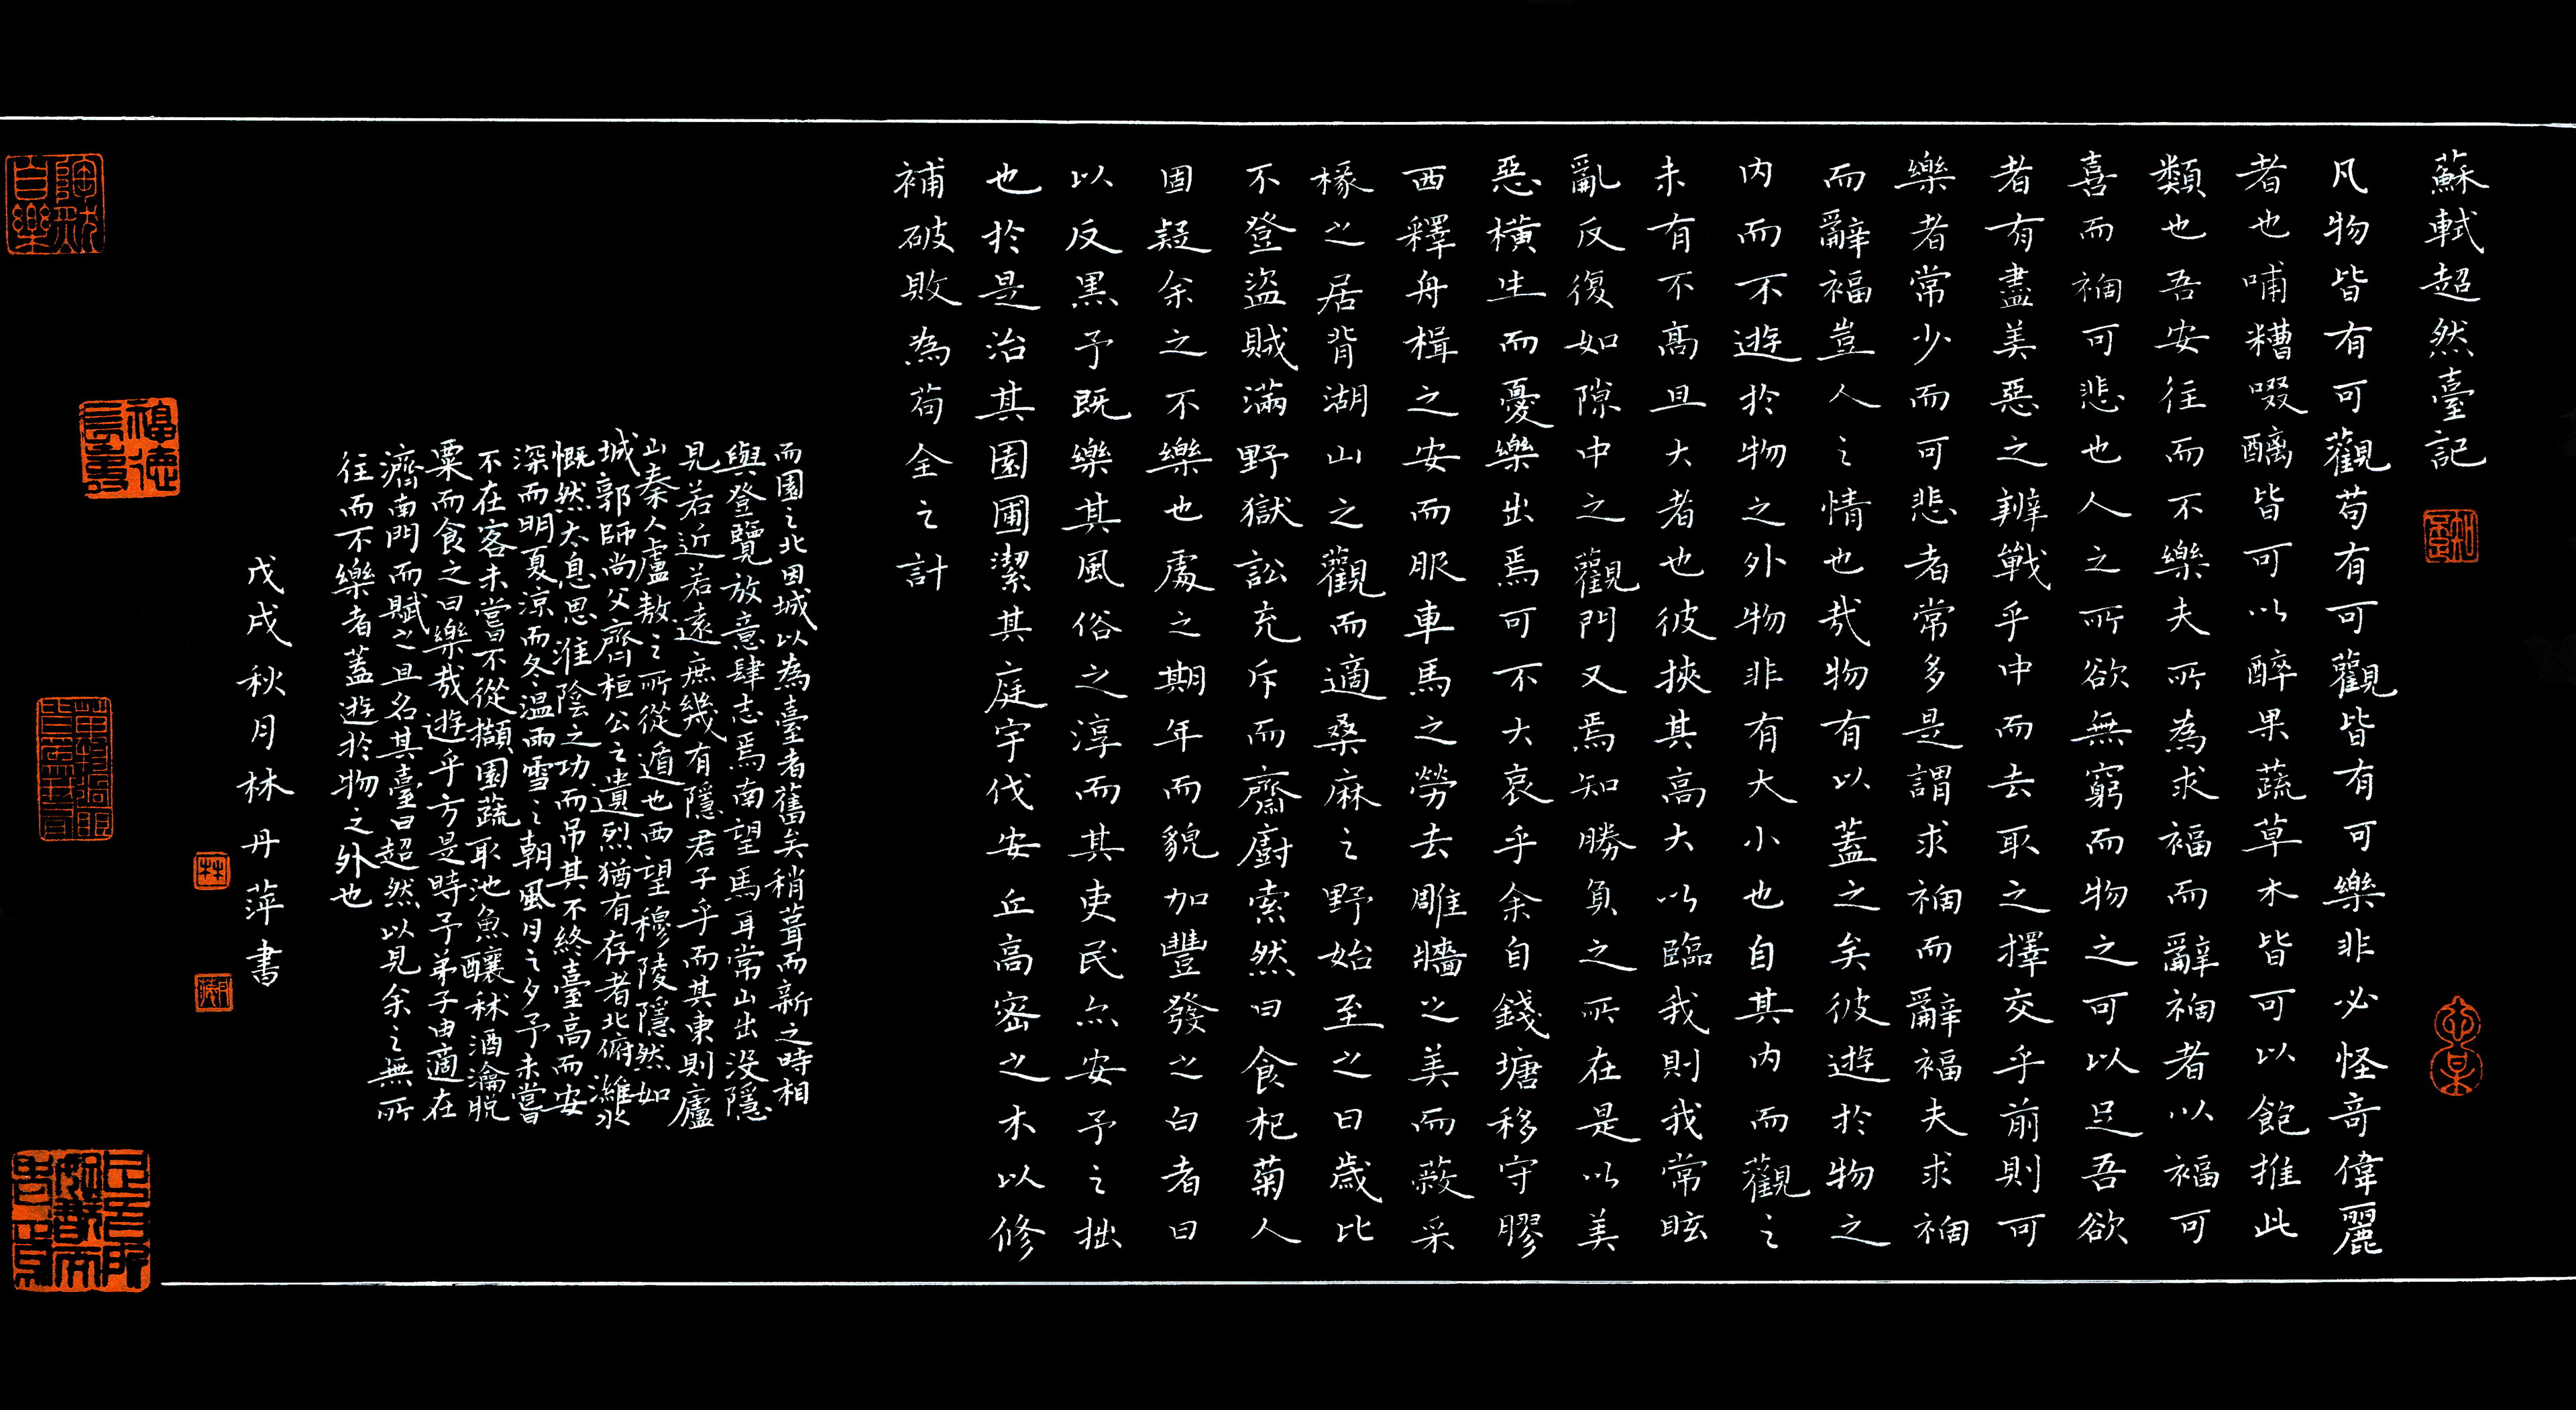 蘇軾超然臺記
凡物皆有可觀苟有可觀皆有可樂非必怪奇偉麗
者也哺糟啜醨皆可以醉果蔬草木皆可以飽推此
類也吾安往而不樂夫所為求福而辭禍者以福可
喜而禍可悲也人之所欲無窮而物之可以足吾欲
者有盡美惡之辨戰乎中而去取之擇交乎前則可
樂者常少而可悲者常多是謂求禍而辭福夫求禍
而辭福豈人之情也哉物有以蓋之矣彼遊於物之
內而不遊於物之外物非有大小也自其內而觀之
未有不高且大者也彼挾其高大以臨我則我常眩
亂反復如隙中之觀門又焉知勝負之所在是以美
惡橫生而憂樂出焉可不大哀乎余自錢塘移守膠
西釋舟楫之安而服車馬之勞去雕牆之美而蔽采
椽之居背湖山之觀而適桑麻之野始至之日歲比
不登盜賊滿野獄訟充斥而齋廚索然日食杞菊人
固疑余之不樂也處之期年而貌加豐發之白者日
以反黑予既樂其風俗之淳而其吏民亦安予之拙
也於是治其園圃潔其庭宇伐安丘高密之木以修
補破敗為苟全之計
而園之北因城以為臺者舊矣稍葺而新之時相
與登覽放意肆志焉南望馬耳常山出沒隱
見若近若遠庶幾有隱君子乎而其東則廬
山秦人盧敖之所從遁也西望穆陵隱然如
城郭師尚父齊桓公之遺烈猶有存者北俯濰水
慨然太息思淮陰之功而吊其不終臺高而安
深而明夏涼而冬溫雨雪之朝風月之夕予未嘗
不在客未嘗不從擷園蔬取池魚釀秫酒瀹脫
粟而食之曰樂哉遊乎方是時予弟子由適在
濟南聞而賦之且名其臺曰超然以見余之無所
往而不樂者蓋遊於物之外也
戊戌秋月林丹萍書
陶然自樂